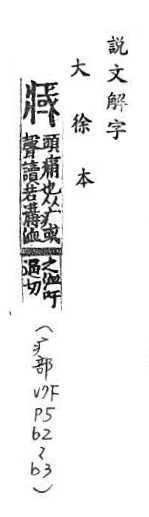 説文解字
大徐本
頭痛也从疒或
聲讀若溝洫
之洫吁
逼切
(疒部 V7F
P5
b2
~
b3)